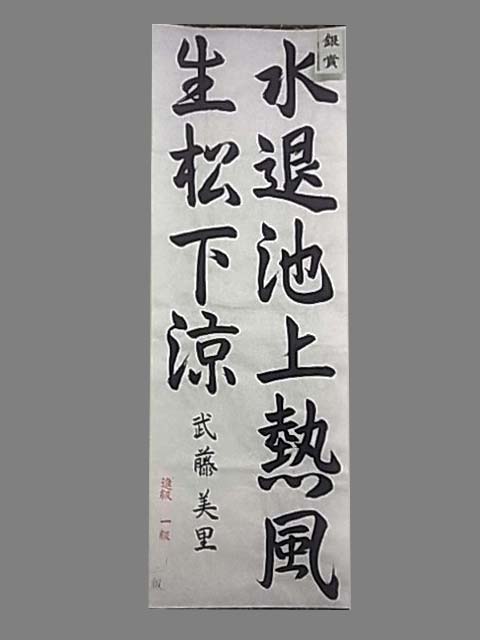 銀賞
水退池上熱風
生松下涼
武藤美里
進級 一級